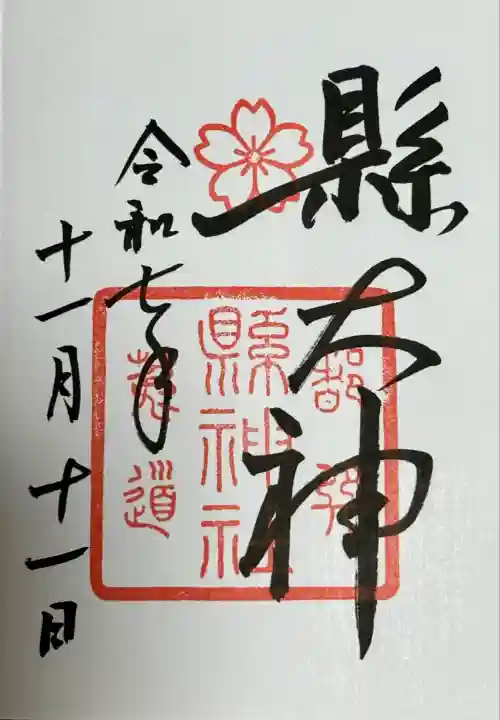 縣大神
都
縣神社
菟道
令和七年
十一月十一日